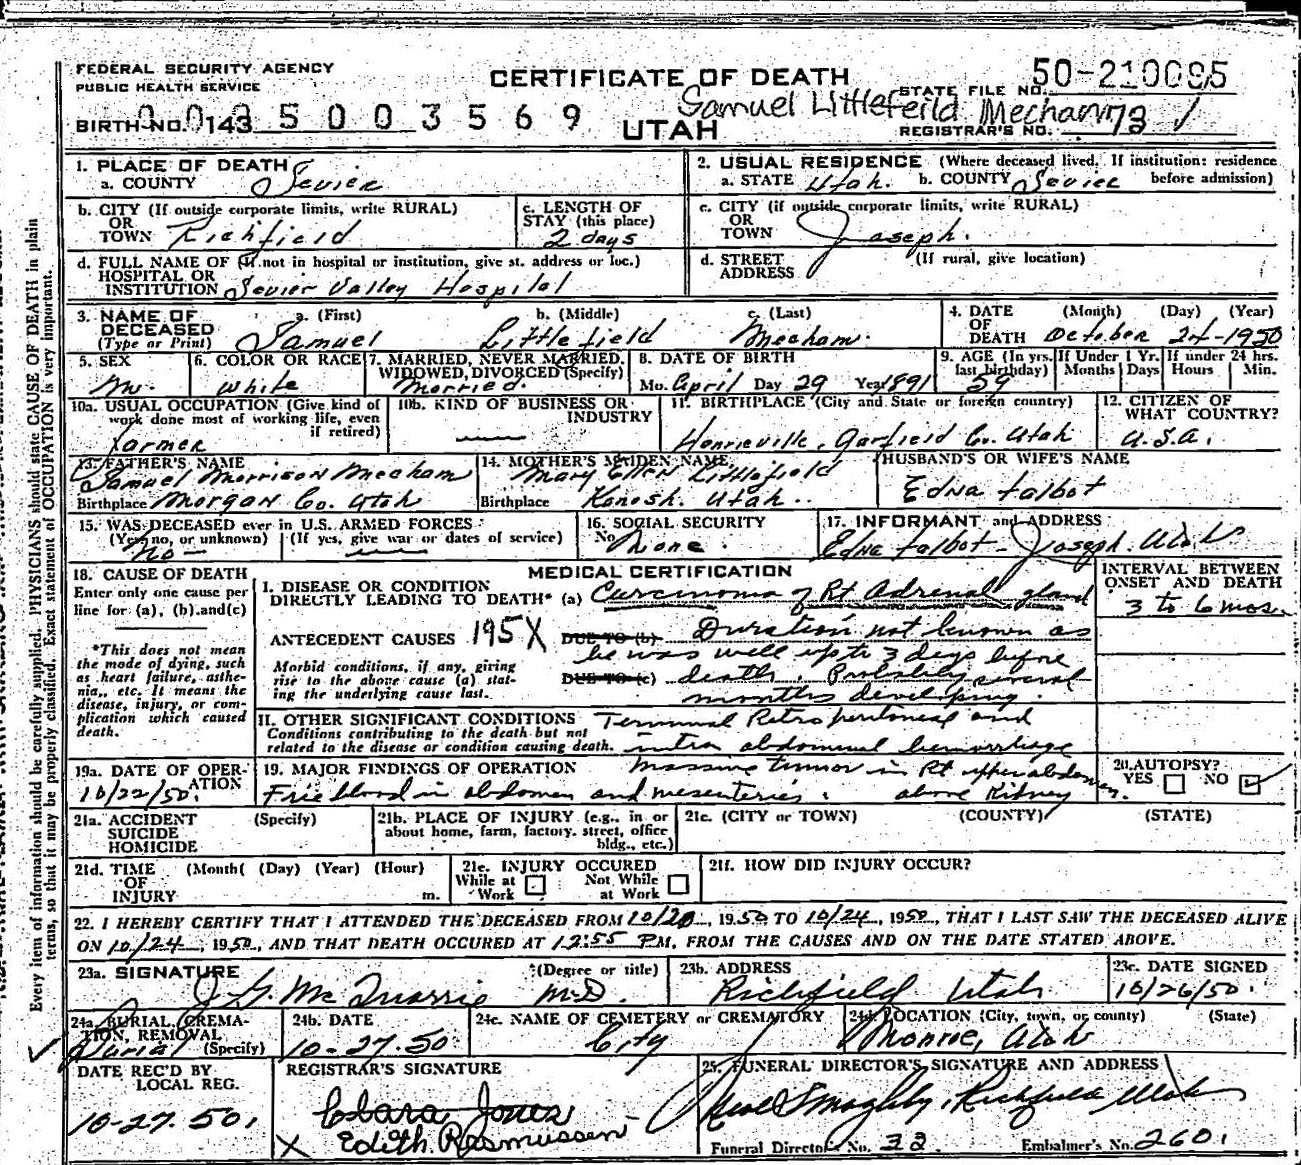 FEDERAL SECURITY AGENCY
PUBLIC HEALTH SERVICE
CERTIFICATE OF DEATH
STATE FILE NO. 50-210095
BIRTH NO. 143 5003569
UTAH
Samuel Littlefeild Mecham
REGISTRAR'S NO. 73
Every item of information should be carefully supplied. PHYSICIANS should state CAUSE OF DEATH in plain
terms, so that it may be properly classified. Exact statement of OCCUPATION is very important.
1. PLACE OF DEATH
a. COUNTY Sevier
2. USUAL RESIDENCE (Where deceased lived. If institution: residence
a. STATE Utah. b. COUNTY Sevier before admission)
b. CITY (If outside corporate limits, write RURAL)
OR
TOWN Richfield
c. LENGTH OF
STAY (this place)
2 days
c. CITY (if outside corporate limits, write RURAL)
OR
TOWN Joseph.
d. FULL NAME OF (If not in hospital or institution, give st. address or loc.)
HOSPITAL OR
INSTITUTION Sevier Valley Hospital
d. STREET (If rural, give location)
ADDRESS
3. NAME OF DECEASED (Type or Print)
a. (First) b. (Middle) c. (Last)
Samuel Littlefield Mecham.
4. DATE OF DEATH (Month) (Day) (Year)
October 24-1950
5. SEX
M.
6. COLOR OR RACE
White
7. MARRIED, NEVER MARRIED,
WIDOWED, DIVORCED (Specify)
Married.
8. DATE OF BIRTH
Mo. April Day 29 Year 1891
9. AGE (In yrs. last birthday) 59
If Under 1 Yr. Months Days
If under 24 hrs. Hours Min.
10a. USUAL OCCUPATION (Give kind of
work done most of working life, even
if retired)
Farmer
10b. KIND OF BUSINESS OR
INDUSTRY
11. BIRTHPLACE (City and State or foreign country)
Henrieville, Garfield Co. Utah
12. CITIZEN OF
WHAT COUNTRY?
U.S.A.
13. FATHER'S NAME
Samuel Morrison Mecham
Birthplace Morgan Co. Utah
14. MOTHER'S MAIDEN NAME
Mary Ellen Littlefield
Birthplace Kanosh. Utah..
HUSBAND'S OR WIFE'S NAME
Edna Talbot
15. WAS DECEASED ever in U.S. ARMED FORCES
(Yes, no, or unknown) (If yes, give war or dates of service)
No
16. SOCIAL SECURITY
No. None.
17. INFORMANT and ADDRESS
Edna Talbot - Joseph. Utah
18. CAUSE OF DEATH
Enter only one cause per
line for (a), (b) and (c)
*This does not mean
the mode of dying, such
as heart failure, asthe-
nia, etc. It means the
disease, injury, or com-
plication which caused
death.
MEDICAL CERTIFICATION
INTERVAL BETWEEN
ONSET AND DEATH
3 to 6 mos.
I. DISEASE OR CONDITION
DIRECTLY LEADING TO DEATH* (a) Carcinoma of Rt Adrenal gland
ANTECEDENT CAUSES 195X DUE TO (b) Duration not known as
he was well up to 3 days before
Morbid conditions, if any, giving
rise to the above cause (a) stat-
ing the underlying cause last.
DUE TO (c) death. Probably several
months developing.
II. OTHER SIGNIFICANT CONDITIONS
Conditions contributing to the death but not
related to the disease or condition causing death.
Terminal Retroperitoneal and
intra abdominal hemorrhage
19a. DATE OF OPER-
ATION
10/22/50.
19. MAJOR FINDINGS OF OPERATION
Massive tumor in Rt upper abdomen.
Free blood in abdomen and mesenteries. above Kidney
20. AUTOPSY?
YES NO
21a. ACCIDENT (Specify)
SUICIDE
HOMICIDE
21b. PLACE OF INJURY (e.g., in or
about home, farm, factory, street, office
bldg., etc.)
21c. (CITY or TOWN) (COUNTY) (STATE)
21d. TIME (Month( (Day) (Year) (Hour)
OF
INJURY m.
21e. INJURY OCCURED
While at Work Not While at Work
21f. HOW DID INJURY OCCUR?
22. I HEREBY CERTIFY THAT I ATTENDED THE DECEASED FROM 10/20, 1950 TO 10/24, 1950, THAT I LAST SAW THE DECEASED ALIVE
ON 10/24, 1950, AND THAT DEATH OCCURED AT 12:55 P.M. FROM THE CAUSES AND ON THE DATE STATED ABOVE.
23a. SIGNATURE (Degree or title)
J. G. McQuarrie M.D.
23b. ADDRESS
Richfield Utah
23c. DATE SIGNED
10/26/50.
24a. BURIAL, CREMA-
TION, REMOVAL
Burial (Specify)
24b. DATE
10-27-50
24c. NAME OF CEMETERY or CREMATORY
City
24d. LOCATION (City, town, or county) (State)
Monroe, Utah
DATE REC'D BY
LOCAL REG.
10-27-50.
REGISTRAR'S SIGNATURE
Clara Jones
X Edith Rasmussen
25. FUNERAL DIRECTOR'S SIGNATURE AND ADDRESS
Richfield Utah
Funeral Director No. 32 Embalmer's No. 260